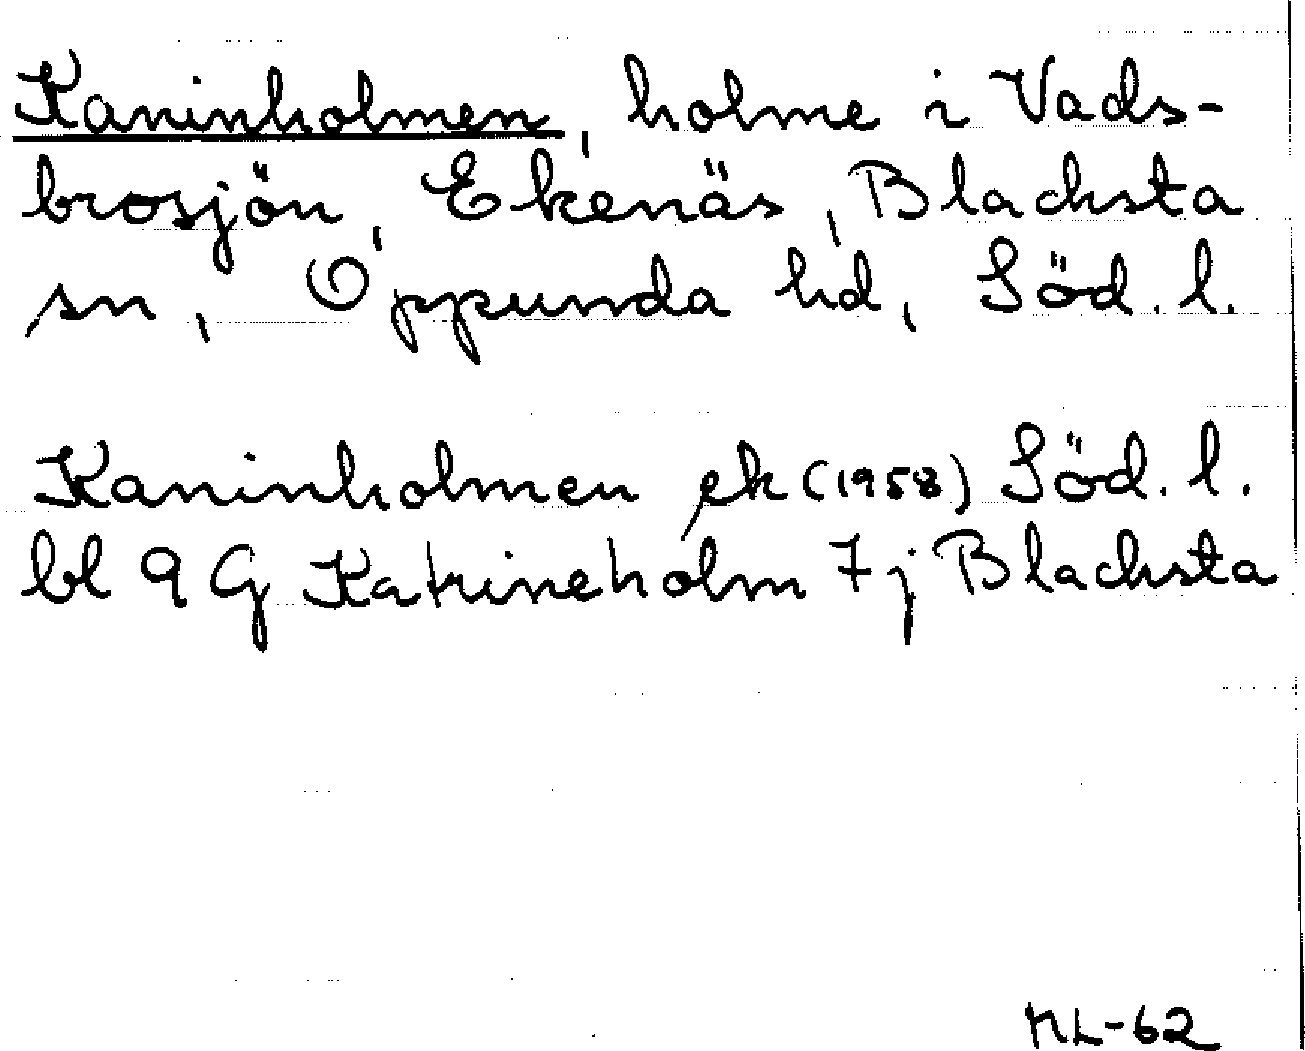 Kaninholmen, holme i Vads-
brosjön, Ekenäs, Blacksta
sn, Oppunda hd, Söd. l.
Kaninholmen ek (1958) Söd. l.
bl 9 G Katrineholm 7 j Blacksta
ML-62